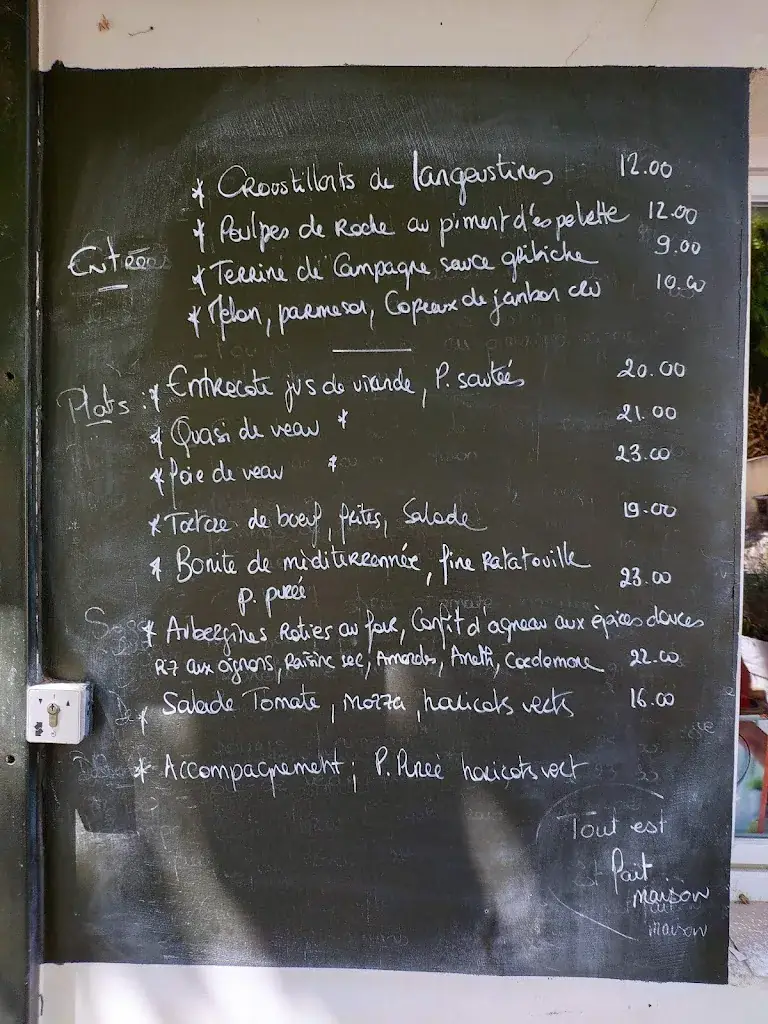 * Croustillants de langoustines 12.00
* Poulpes de Roche au piment d'espelette 12.00
Entrées
* Terrine de Campagne sauce gribiche 9.00
* Melon, parmesan, Copeaux de jambon cru 10.00
Plats . * Entrecote jus de viande, P. sautées 20.00
* Quasi de veau * 21.00
* foie de veau * 23.00
* Tartare de boeuf, frites, Salade 19.00
* Bonite de méditerrannée, fine Ratatouille
p. purée 23.00
* Aubergines Roties au four, Confit d'agneau aux épices douces
RZ aux oignons, Raisins sec, Amandes, Aneth, Cardamome 22.00
* Salade Tomate, Mozza, haricots verts 16.00
* Accompagnement; P. Purée haricots vert
Tout est
fait
maison
maison